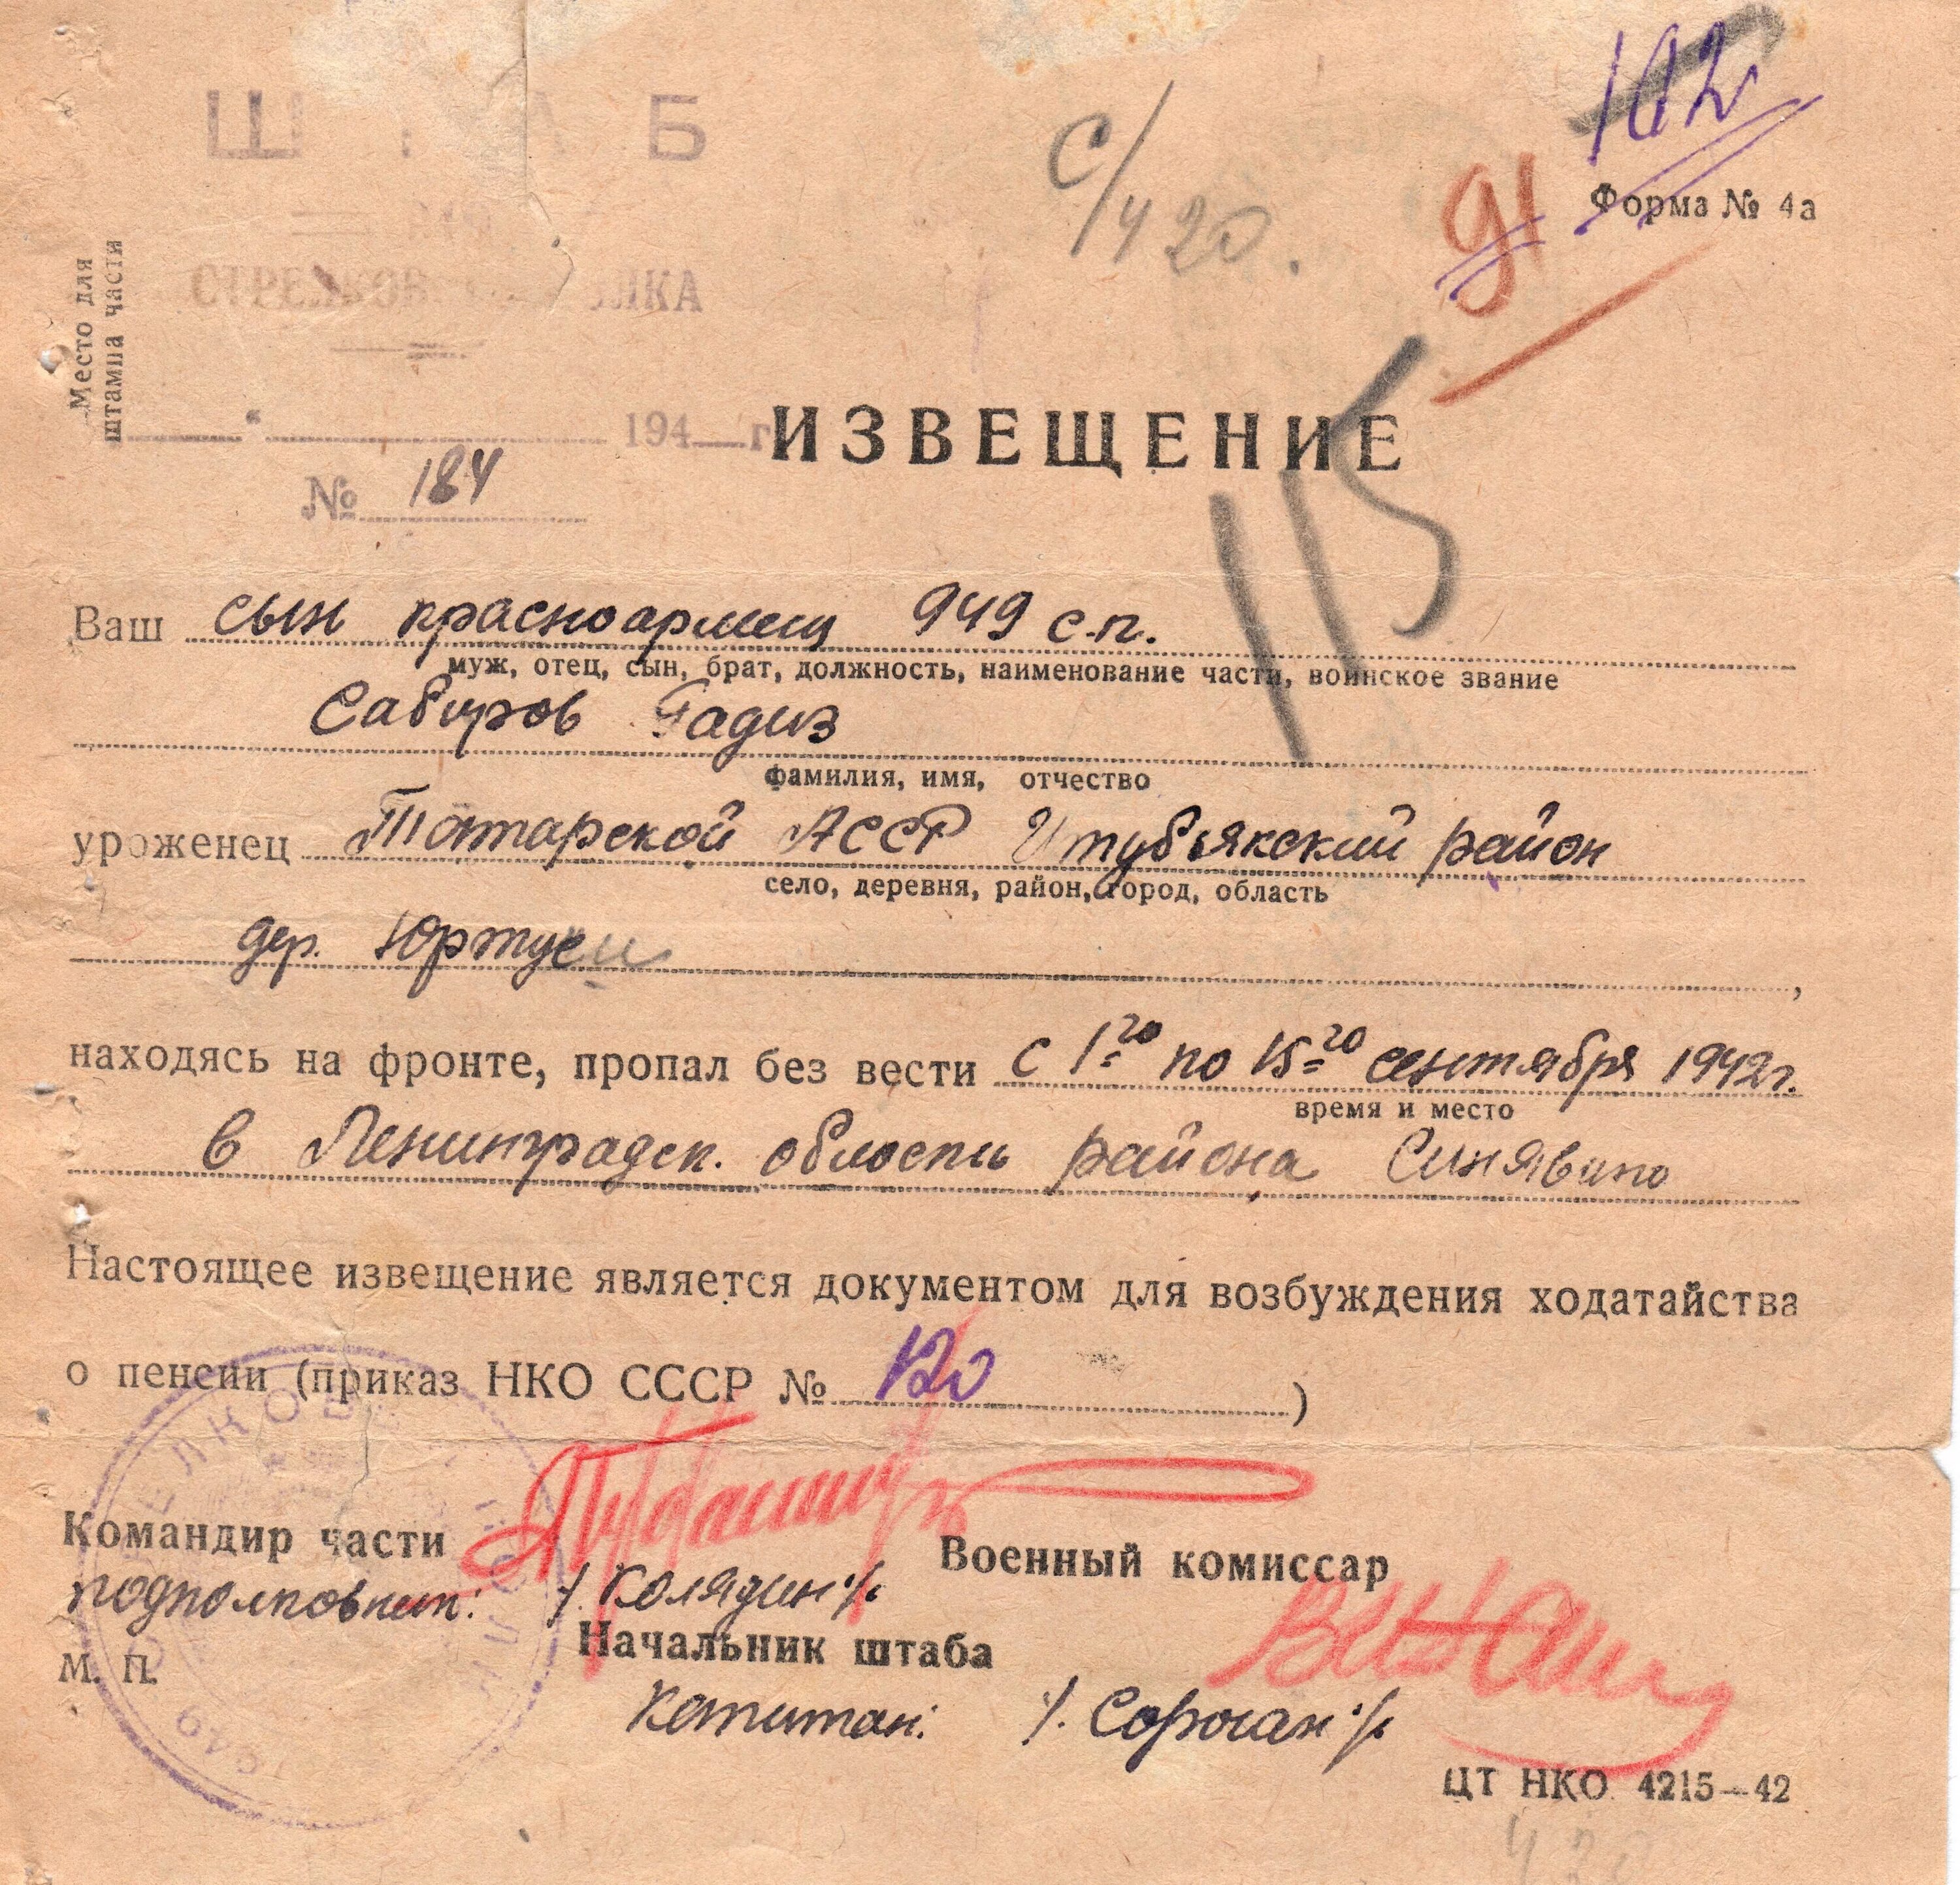 102
С/420.
91
Форма № 4а
Место для
штампа части
194 г.
ИЗВЕЩЕНИЕ
№ 184
115
Ваш сын красноармеец 949 с.п.
муж, отец, сын, брат, должность, наименование части, воинское звание
Сабиров Гадиз
фамилия, имя, отчество
уроженец Татарской АССР Утубьякский район
село, деревня, район, город, область
дер. Юртуси,
находясь на фронте, пропал без вести с 1-го по 15-го сентября 1942г.
время и место
в Ленинградск. области района Синявино
Настоящее извещение является документом для возбуждения ходатайства
о пенсии (приказ НКО СССР № 120 )
Командир части
Военный комиссар
подполковник: /. Колядин ./.
Начальник штаба
М. П.
Капитан: /. Сорокан ./.
ЦТ НКО 4215—42
420